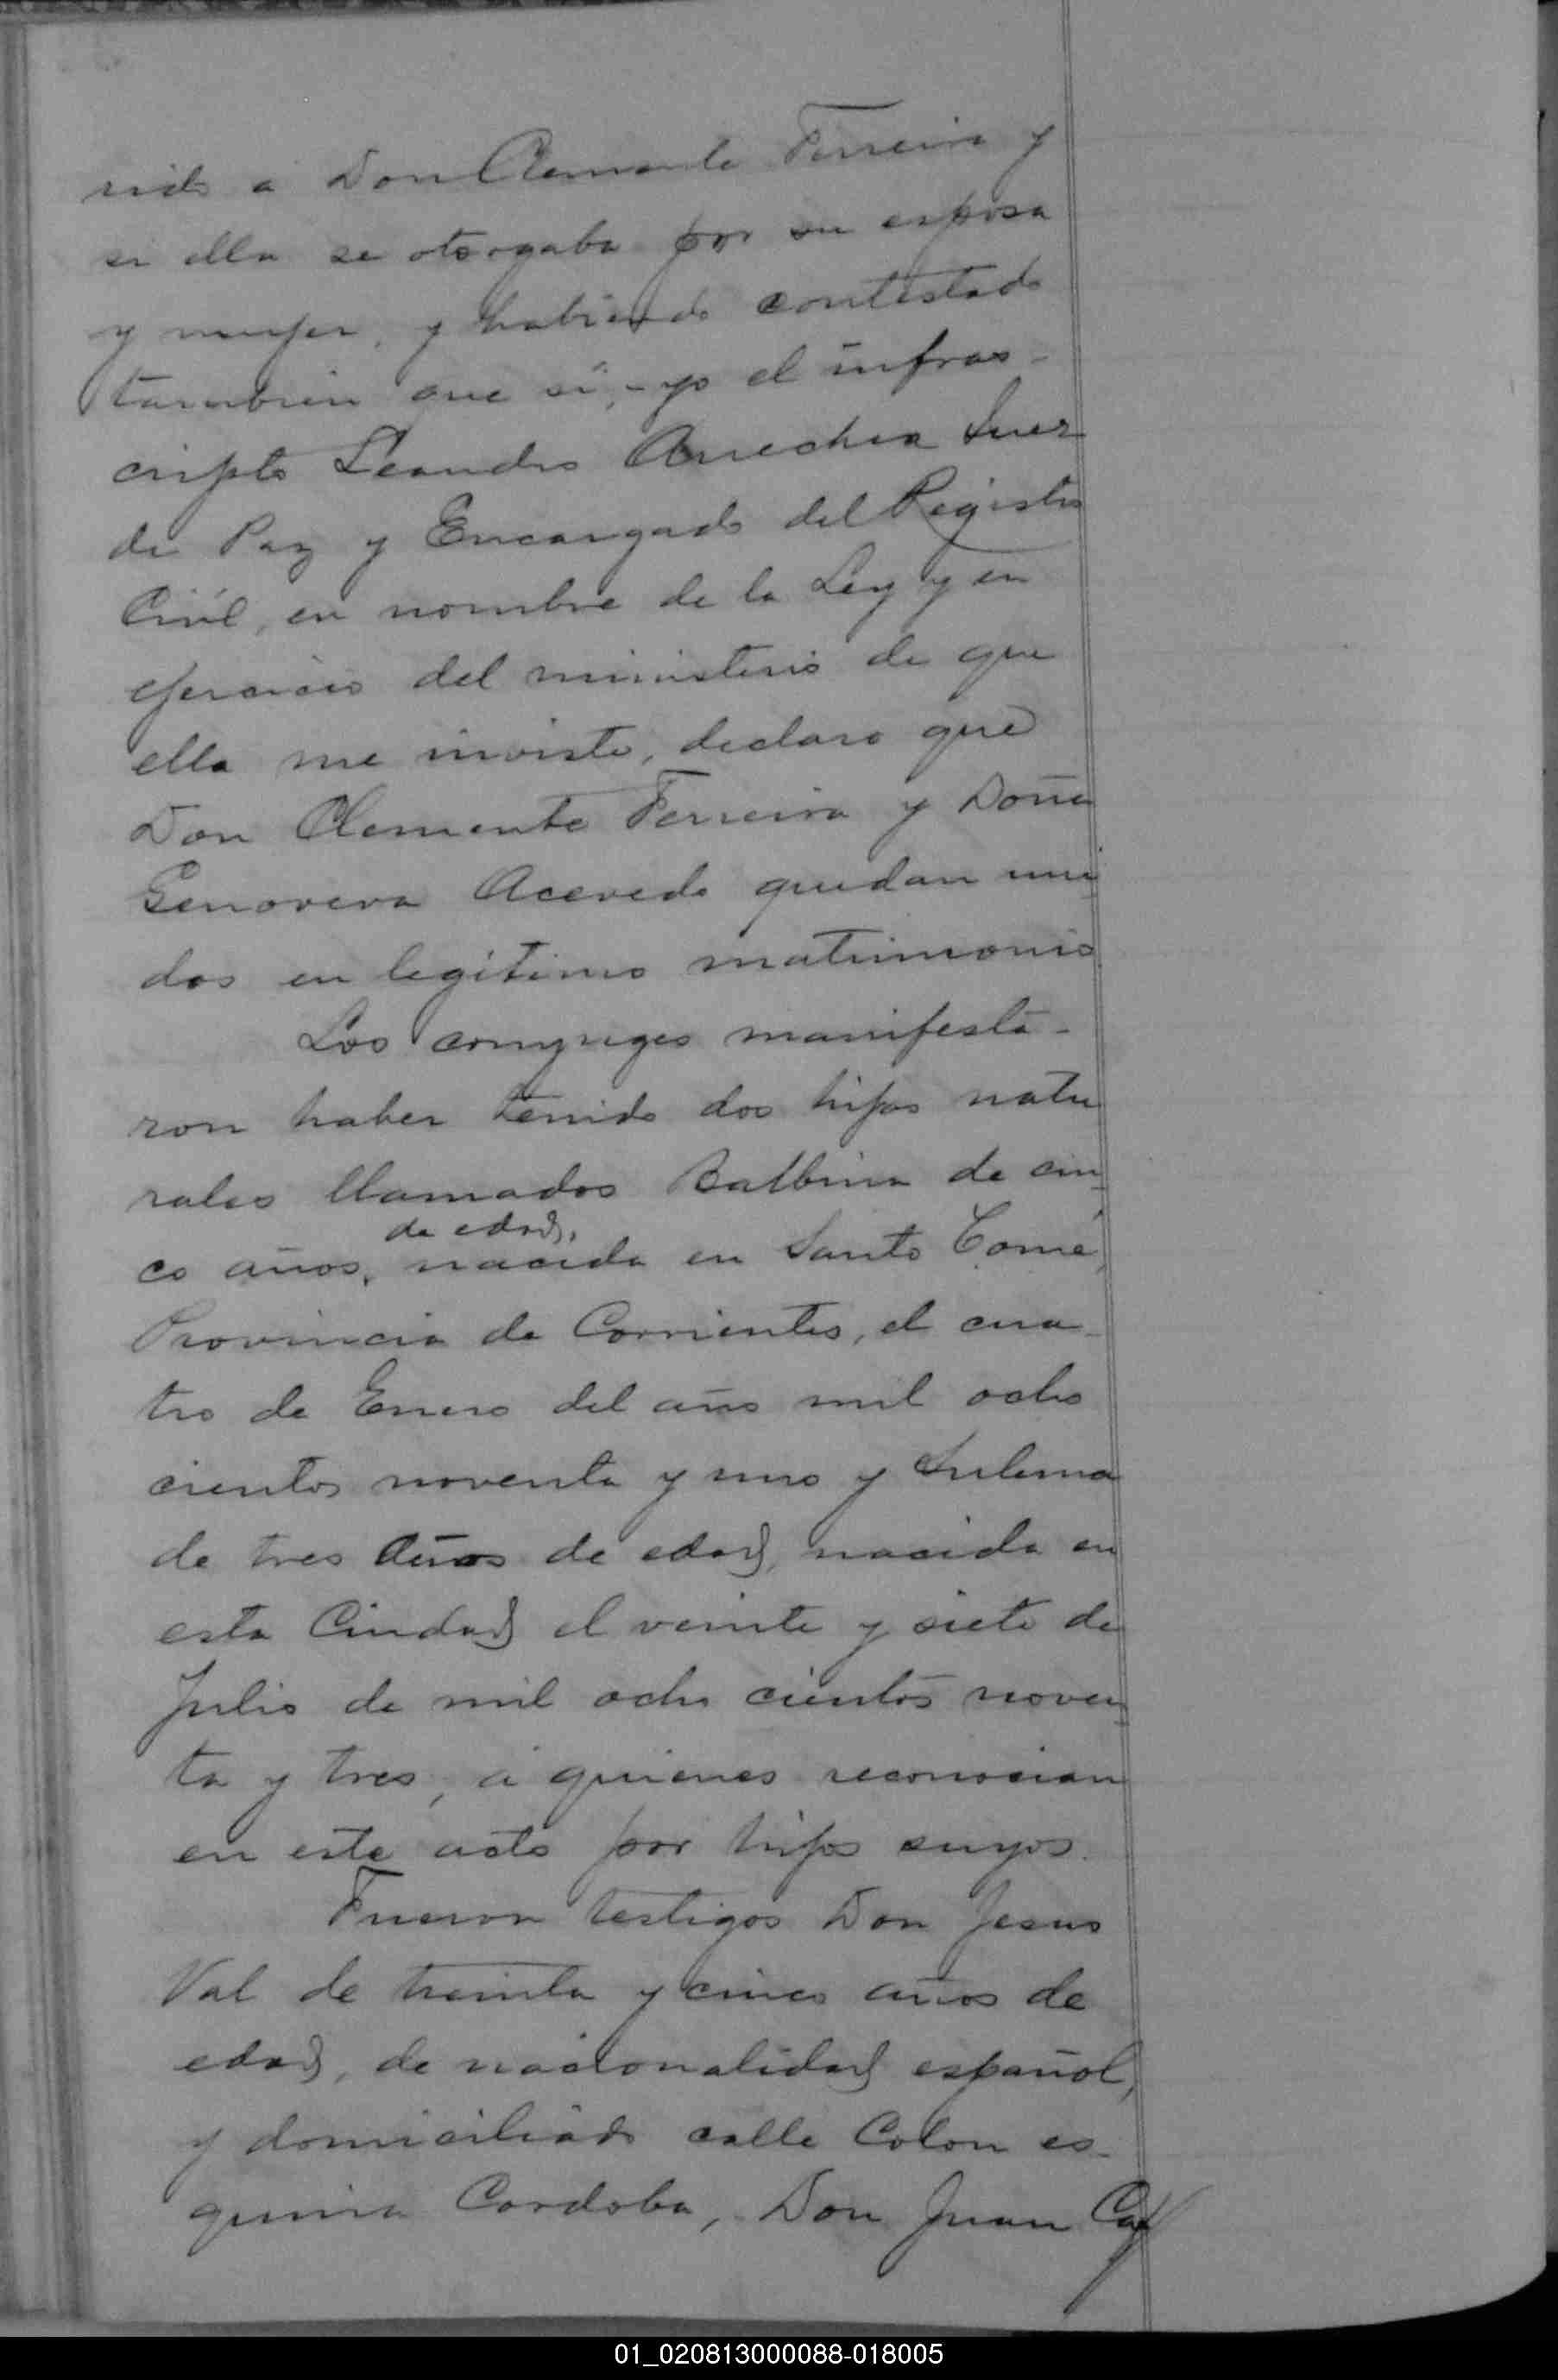 rido a Don Clemente Ferreira y
si ella se otorgaba por su esposa
y mujer, y habiendo contestado
tambien que si,- yo el infras-
cripto Leandro Arrechea Juez
de Paz y Encargado del Registro
Civil, en nombre de la Ley y en
ejercicio del ministerio de que
ella me inviste, declaro que
Don Clemente Ferreira y Doña
Genoveva Acevedo quedan uni
dos en legítimo matrimonio
Los conyuges manifesta-
ron haber tenido dos hijos natu
rales llamados Balbina de cin
de edad,
co años, nacida en Santo Tomé,
Provincia de Corrientes, el cua-
tro de Enero del año mil ocho
cientos noventa y uno y Sulema
de tres años de edad, nacida en
esta Ciudad el veinte y siete de
Julio de mil ocho cientos noven
ta y tres, á quienes reconocian
en este acto por hijos suyos.
Fueron testigos Don Jesus
Val de treinta y cinco años de
edad, de nacionalidad español,
y domiciliado calle Colon es-
quina Cordoba, Don Juan
01_020813000088-018005